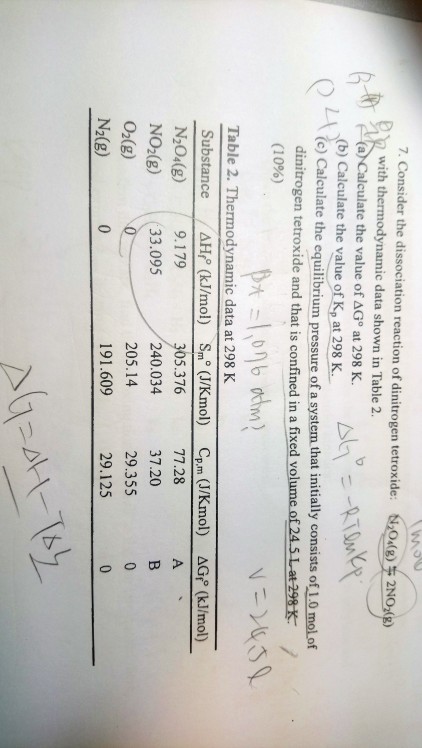 7. Consider the dissociation reaction of dinitrogen tetroxide: N₂O₄(g) ⇆ 2NO₂(g)
with thermodynamic data shown in Table 2.
(a) Calculate the value of ΔG° at 298 K.
(b) Calculate the value of Kₚ at 298 K.
ΔG° = -RTlnKp
(c) Calculate the equilibrium pressure of a system that initially consists of 1.0 mol of
dinitrogen tetroxide and that is confined in a fixed volume of 24.5 L at 298 K.
(10%)
V = 24.5L
Table 2. Thermodynamic data at 298 K
Substance ΔHf° (kJ/mol) Sm° (J/Kmol) Cp,m (J/Kmol) ΔGf° (kJ/mol)
N₂O₄(g) 9.179 305.376 77.28 A
NO₂(g) 33.095 240.034 37.20 B
O₂(g) 0 205.14 29.355 0
N₂(g) 0 191.609 29.125 0
ΔG=ΔH-TΔS